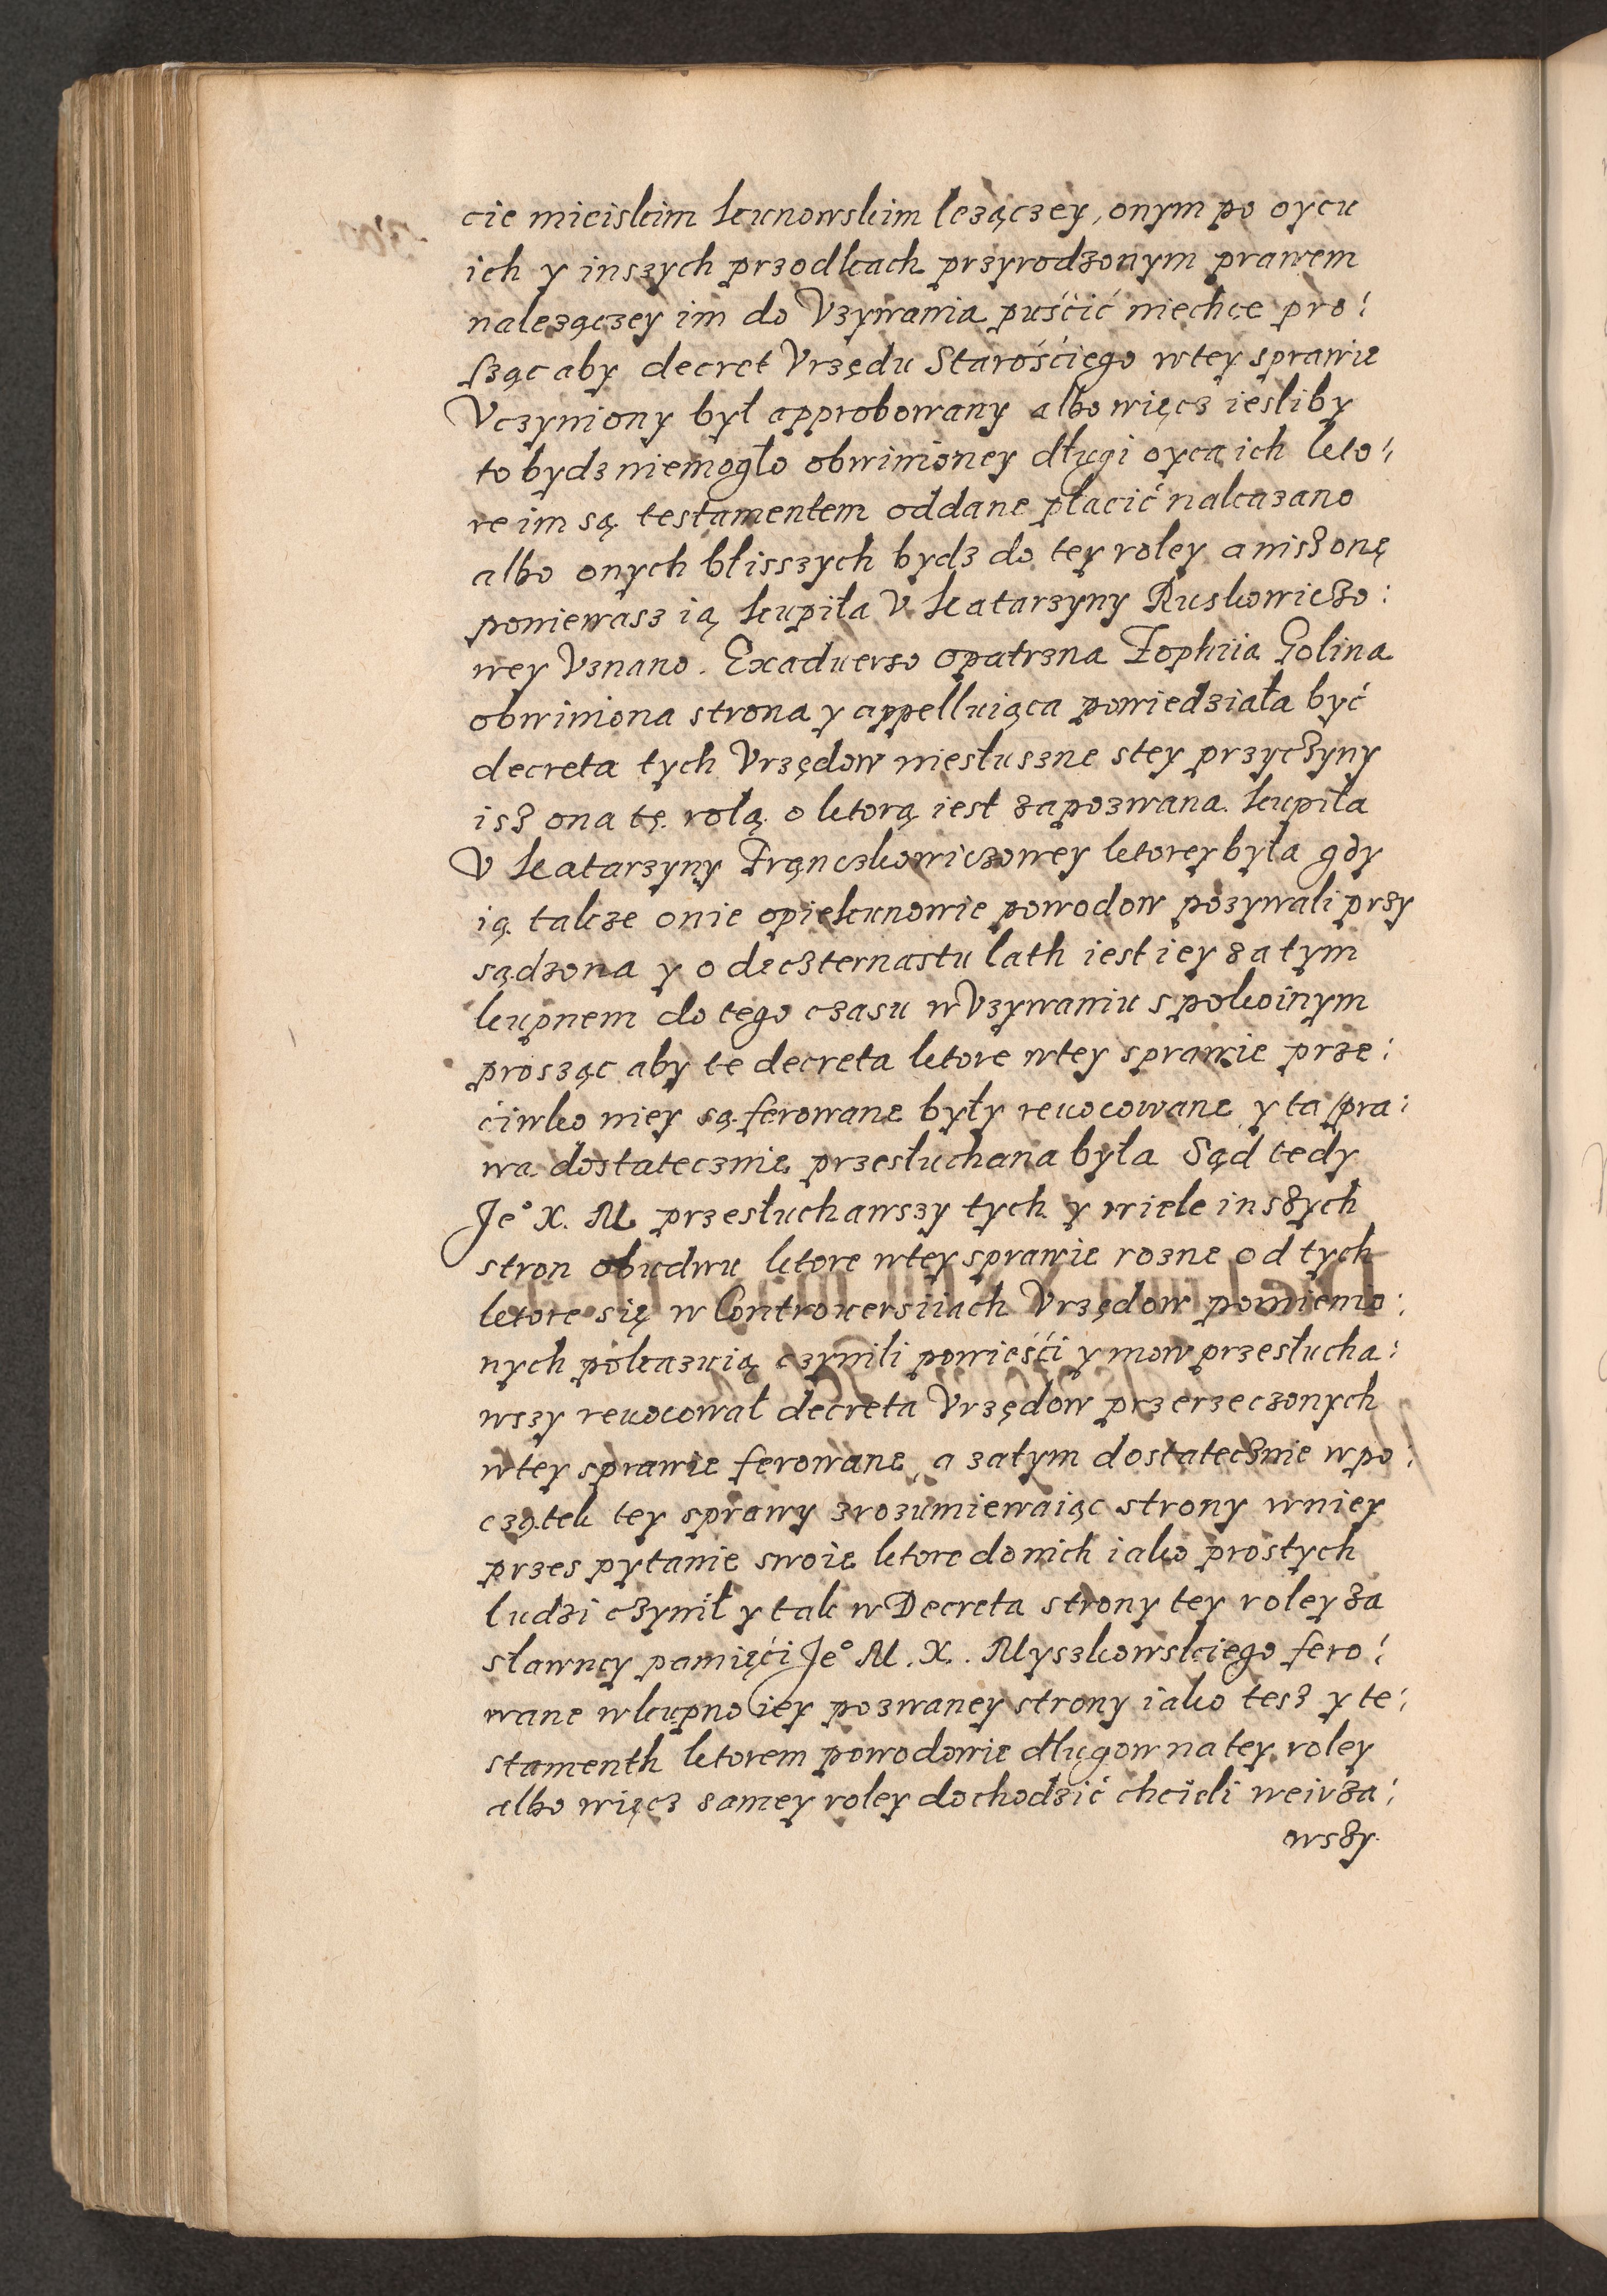 cie mieiskim Kunowskim lezączey, onym po oycu
ich y inszych przodkach przyrodzonym prawem
nalezączey im do Vzywania puśćić niechce pro:
sząc aby decret Vrzędu Starośćiego wtey sprawie
Vczyniony był approbowany albo więcz iesliby
to bydz niemogło obwinioney długi oyca ich kto:
re im są testamentem oddane płacić nakazano
albo onych blisszych bydz do tey roley anisz onę
poniewasz ią kupiła V Katarzyny Ruskowiczo:
wey Vznano. Exaduerso opatrzna Zophiia Golina
obwiniona strona y appelluiąca powiedziała być
decreta tych Vrzędow niesłuszne stey przyczyny
isz ona tę rolą o ktorą iest zapozwana kupiła
V Katarzyny Frąnczkowiczowey ktorey była gdy
ią takze onie opiekunowie powodow pozywali przy
sądzona y od czternastu lath iest iey za tym
kupnem do tego czasu w Vzywaniu spokoinym
prosząc aby te decreta ktore wtey sprawie prze:
ćiwko niey są ferowane były reuocowane y ta spra:
wa dostatecznie przesłuchana była Sąd tedy
Je° X. M przesłuchawszy tych y wiele inszych
stron obudwu ktore wtey sprawie rozne od tych
ktore się w Controuersiiach Vrzędow pomienio:
nych pokazuią czynili powieśći y mow przesłucha:
wszy reuocował decreta Vrzędow przerzeczonych
wtey sprawie ferowane, a zatym dostatecznie wpo:
czątek tey sprawy zrozumiewaiąc strony wniey
przes pytanie swoie ktore do nich iako prostych
ludzi czynił y tak w Decreta strony tey roley za
sławney pamięći Je° M. X. Myszkowskiego fero:
wane w kupno iey pozwaney strony iako tesz y te:
stamenth ktorem powodowie długow na tey roley
albo więcz samey roley dochodzić chcieli weivza:
wszy.